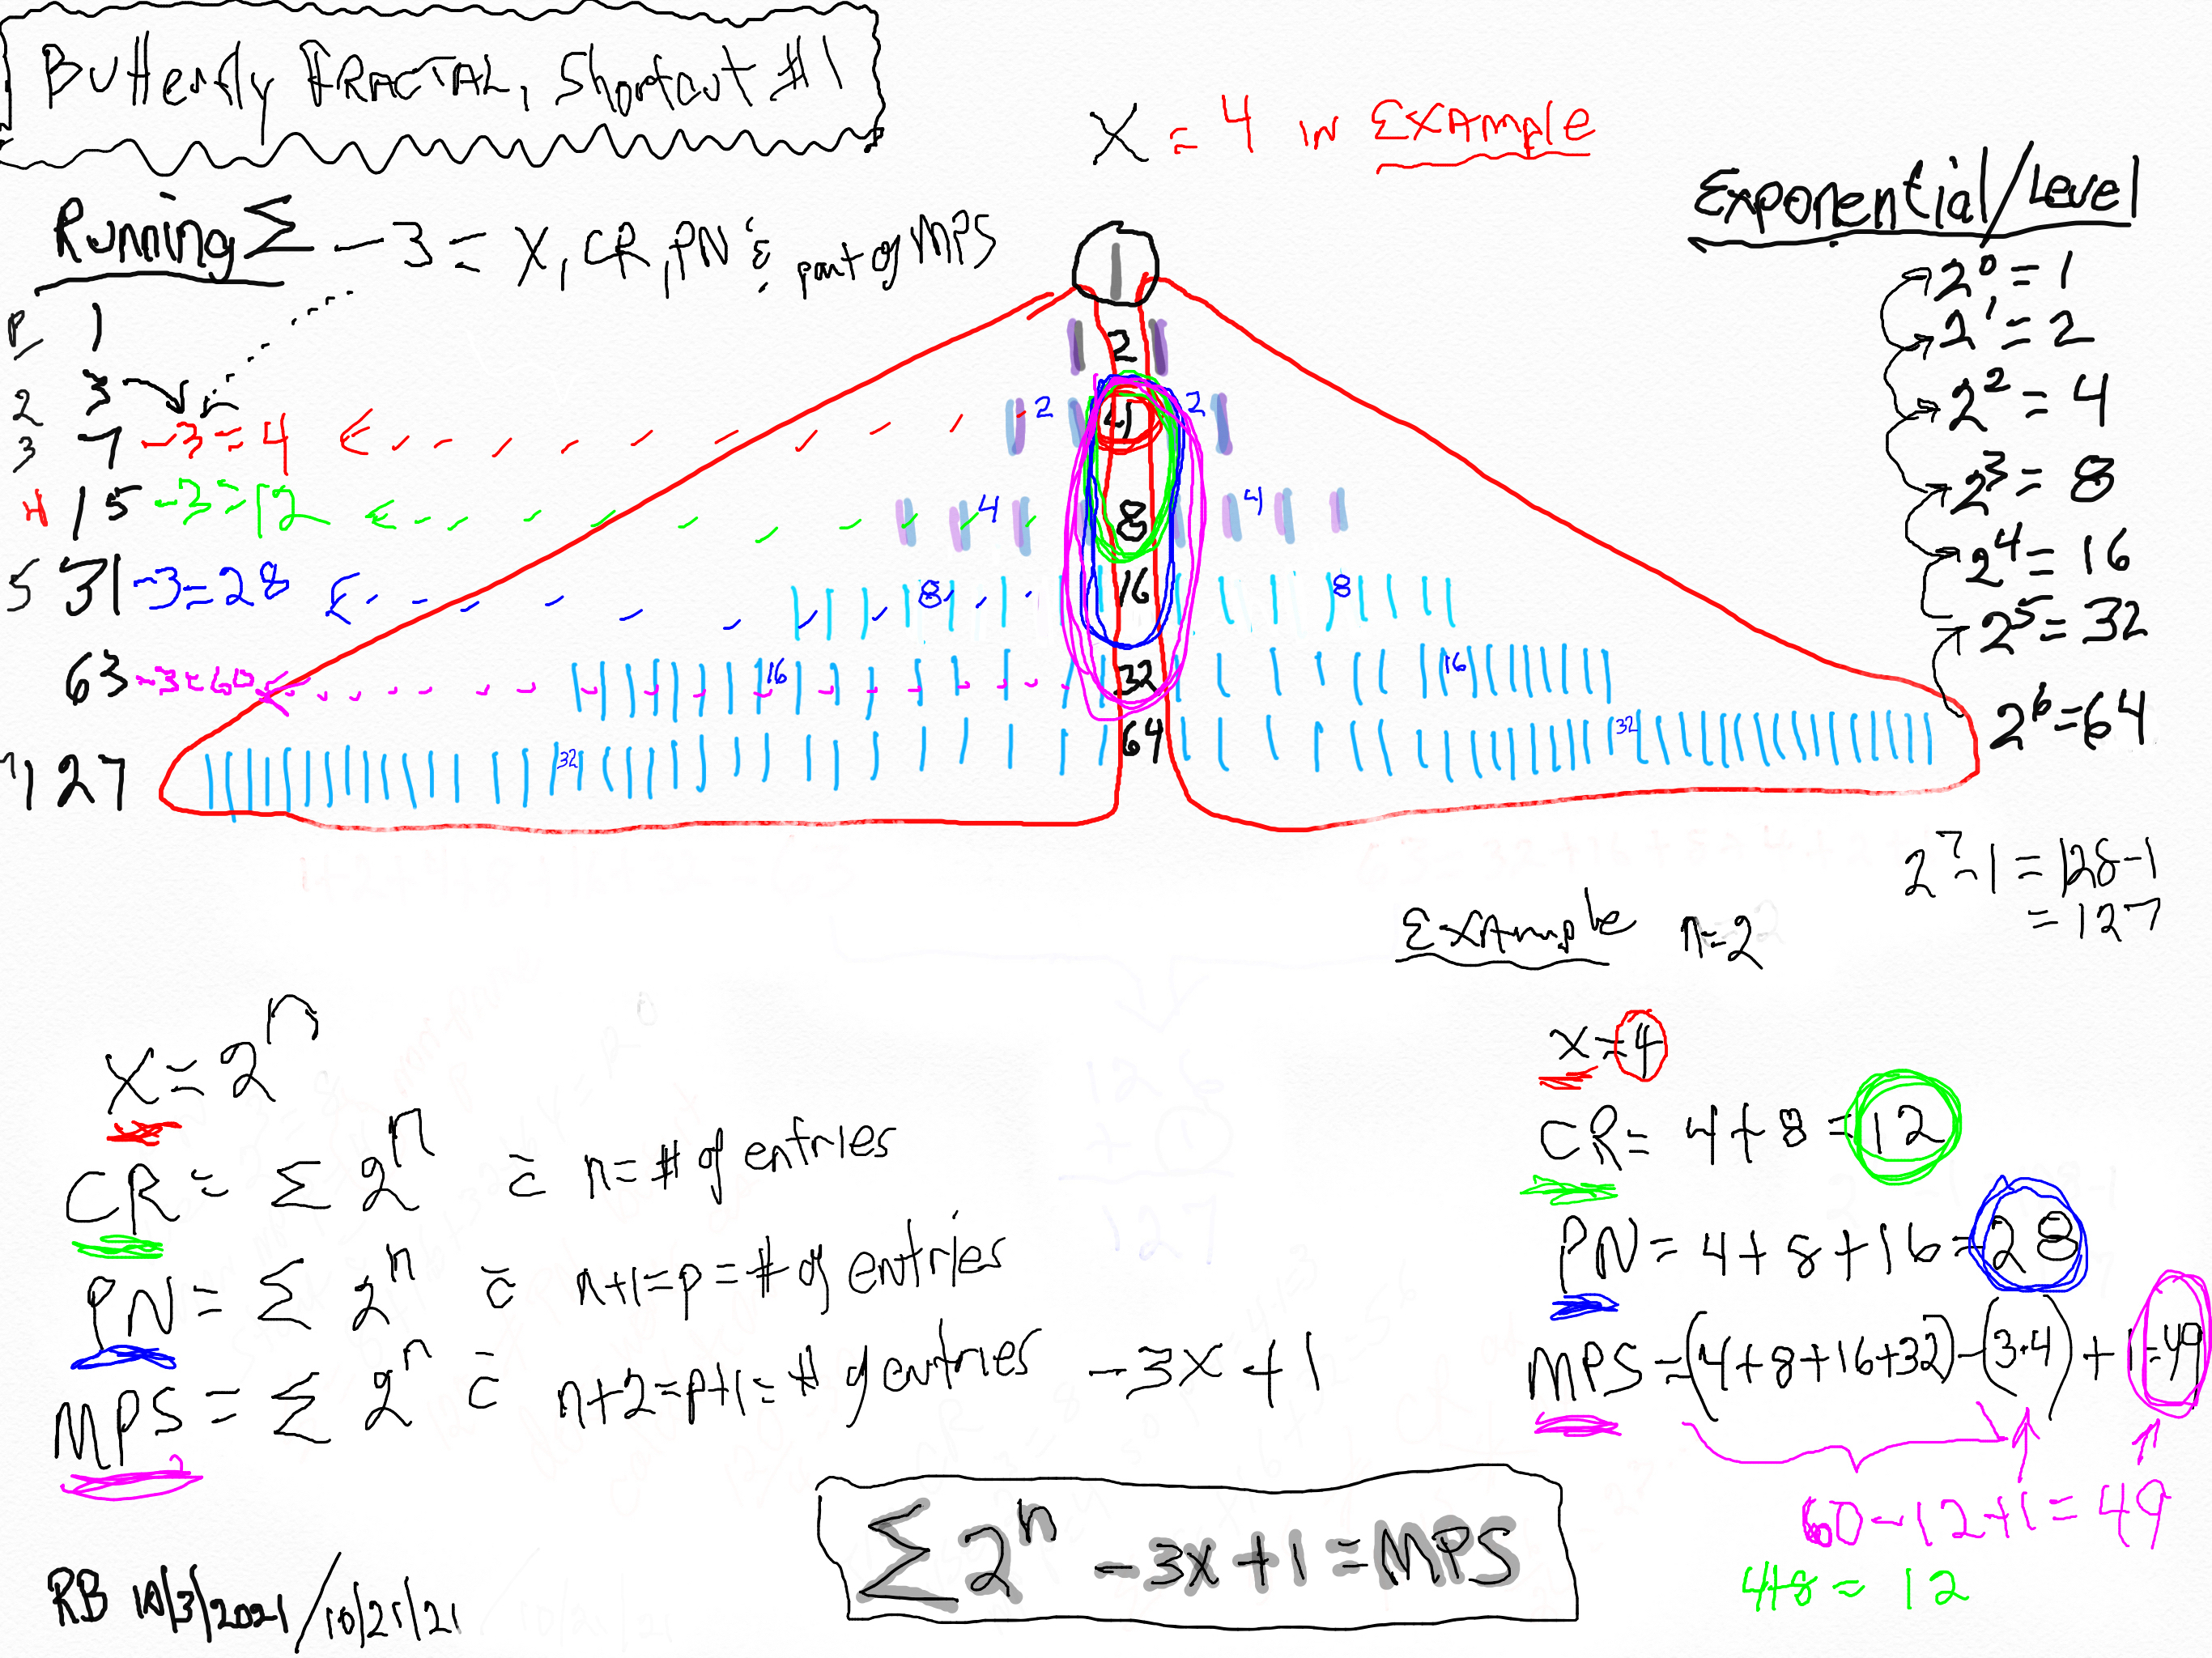 Butterfly FRACTAL, Shortcut #1
X = 4 in EXAMPLE
Running Σ - 3 = X, CR, PN & part of MPS
Exponential/Level
P 1
2 3
3 7 -3=4
4 15 -3=12
5 31 -3=28
63 -3=60
7 127
1
2
2 4 2
4 8 4
8 16 8
16 32 16
32 64 32
2⁰ = 1
2¹ = 2
2² = 4
2³ = 8
2⁴ = 16
2⁵ = 32
2⁶ = 64
2⁷-1 = 128-1
= 127
EXAMPLE n=2
X = 2ⁿ
CR = Σ 2ⁿ c̄ n = # of entries
PN = Σ 2ⁿ c̄ n+1=p=# of entries
MPS = Σ 2ⁿ c̄ n+2=p+1=# of entries -3X+1
x=4
CR= 4+8=12
PN= 4+8+16=28
MPS=(4+8+16+32)-(3·4)+1=49
60-12+1=49
4+8=12
Σ2ⁿ -3x+1=MPS
RB 10/3/2021/10/21/21